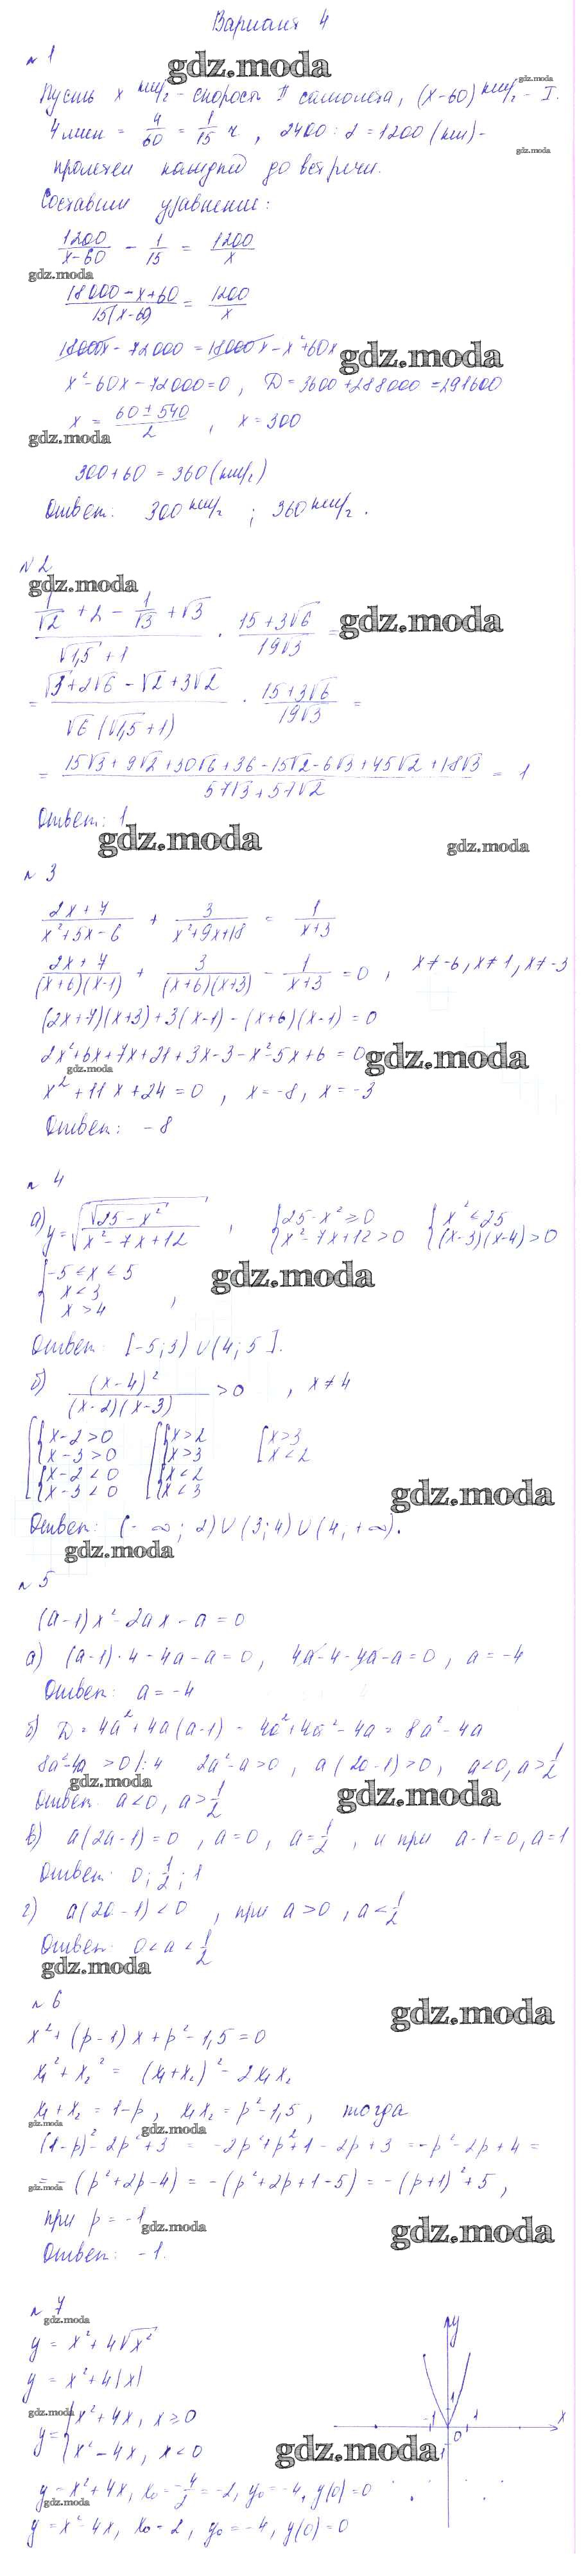 Вариант 4
№ 1
gdz.moda
Пусть x км/г - скорость II самолета, (x-60) км/г - I.
gdz.moda
4 мин = 4/60 = 1/15 ч, 2400 : 2 = 1200 (км) -
gdz.moda
пролетел каждый до встречи.
Составим уравнение:
1200/(x-60) - 1/15 = 1200/x
gdz.moda
(18000-x+60)/(15(x-60)) = 1200/x
18000x - 72000 = 18000x - x²+60x
gdz.moda
x²-60x-72000=0, D=3600+288000=291600
x = (60±540)/2, x=300
gdz.moda
300+60 = 360 (км/г)
Ответ: 300 км/г ; 360 км/г.
№ 2
gdz.moda
(1/√2 + 2 - 1/√3 + √3)/(√1,5 + 1) · (15+3√6)/(19√3) =
gdz.moda
= (√3+2√6-√2+3√2)/(√6(√1,5+1)) · (15+3√6)/(19√3) =
= (15√3+9√2+30√6+36-15√2-6√3+45√2+18√3)/(57√3+57√2) = 1
Ответ: 1
gdz.moda
gdz.moda
№ 3
(2x+7)/(x²+5x-6) + 3/(x²+9x+18) = 1/(x+3)
(2x+7)/((x+6)(x-1)) + 3/((x+6)(x+3)) - 1/(x+3) = 0, x≠-6, x≠1, x≠-3
(2x+7)(x+3)+3(x-1)-(x+6)(x-1)=0
2x²+6x+7x+21+3x-3-x²-5x+6=0
gdz.moda
gdz.moda
x²+11x+24=0, x=-8, x=-3
Ответ: -8
№ 4
а) y=√(√(25-x²)/(x²-7x+12)), {25-x²≥0 {x²≤25
{x²-7x+12>0 {(x-3)(x-4)>0
{-5≤x≤5
gdz.moda
x<3
x>4,
Ответ: [-5;3)∪(4;5].
б) (x-4)²/((x-2)(x-3)) >0, x≠4
[{x-2>0 [{x>2 [x>3
{x-3>0 {x>3 x<2
{x-2<0 {x<2
{x-3<0 {x<3
gdz.moda
Ответ: (-∞;2)∪(3;4)∪(4,+∞).
gdz.moda
№ 5
(a-1)x²-2ax-a=0
а) (a-1)·4-4a-a=0, 4a-4-4a-a=0, a=-4
Ответ: a=-4
б) D=4a²+4a(a-1)=4a²+4a²-4a=8a²-4a
8a²-4a>0 |:4 2a²-a>0, a(2a-1)>0, a<0, a>1/2
gdz.moda
gdz.moda
Ответ: a<0, a>1/2
в) a(2a-1)=0, a=0, a=1/2, и при a-1=0, a=1
Ответ: 0; 1/2; 1
г) a(2a-1)<0, при a>0, a<1/2
Ответ: 0<a<1/2
gdz.moda
№ 6
gdz.moda
x²+(p-1)x+p²-1,5=0
x₁²+x₂²=(x₁+x₂)²-2x₁x₂
x₁+x₂=1-p, x₁x₂=p²-1,5, тогда
gdz.moda
gdz.moda
(1-p)²-2p²+3=-2p²+p²+1-2p+3=-p²-2p+4=
gdz.moda
=-(p²+2p-4)=-(p²+2p+1-5)=-(p+1)²+5,
при p=-1
gdz.moda
gdz.moda
Ответ: -1.
№ 7
gdz.moda
y=x²+4√x²
y=x²+4|x|
gdz.moda
y={x²+4x, x≥0
{x²-4x, x<0
gdz.moda
y=x²+4x, x₀=-4/2=-2, y₀=-4, y(0)=0
gdz.moda
y=x²-4x, x₀=2, y₀=-4, y(0)=0
y
1
-1
0
1
x